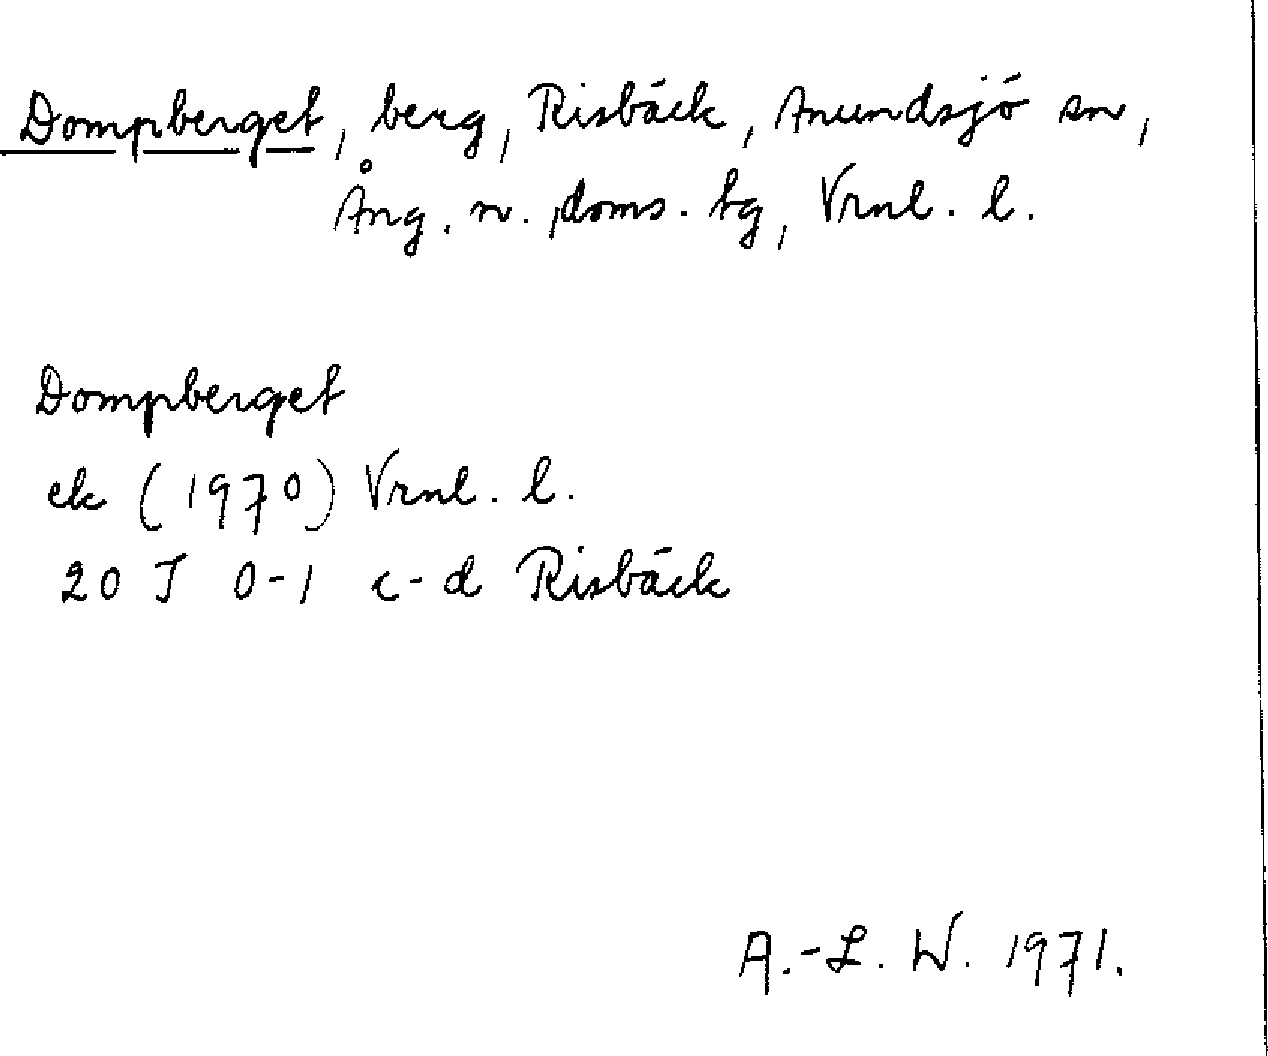 Dompberget, berg, Risbäck, Anundsjö sn,
Ång. n. doms. bg, Vrnl. l.
Dompberget
ek (1970) Vrnl. l.
20 J 0-1 c-d Risbäck
A.-L. W. 1971.